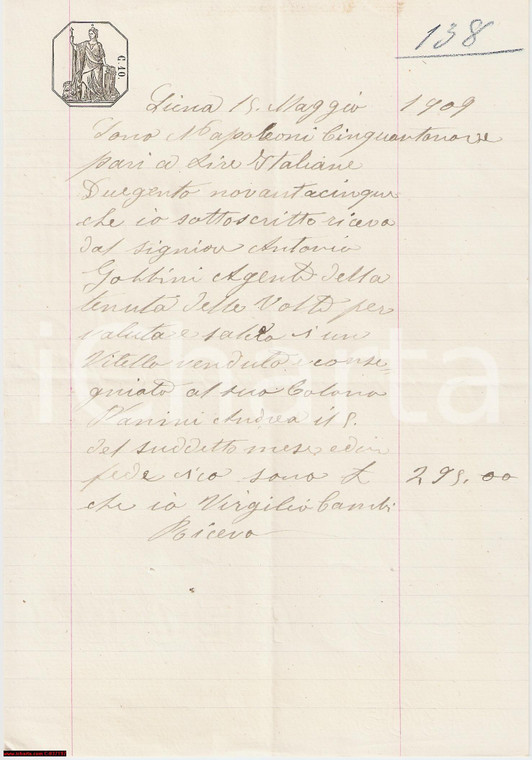 138
C. 40.
Siena 15. Maggio 1909
Sono Napoleoni Cinquantanove
pari a Lire Italiane
Duegento novantacinque
che io sottoscritto ricevo
dal signior Antonio
Gobbini Agente della
tenuta delle Volte per
valuta e saldo di un
Vitello venduto e conse
gniato al suo Colono
Vanini Andrea il 5.
del suddetto mese ed in
fede dico sono £ 295.00
che io Virgilio Cambi
Ricevo